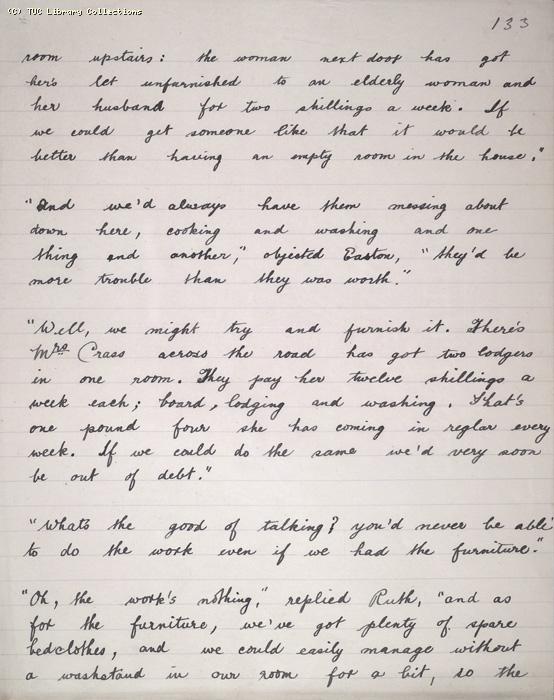 (C) TUC Library Collections
133
room upstairs: the woman next door has got
her's let unfurnished to an elderly woman and
her husband for two shillings a week. If
we could get someone like that it would be
better than having an empty room in the house."
"And we'd always have them messing about
down here, cooking and washing and one
thing and another," objected Easton, "they'd be
more trouble than they was worth."
"Well, we might try and furnish it. There's
Mrs Crass across the road has got two lodgers
in one room. They pay her twelve shillings a
week each; board, lodging and washing. That's
one pound four she has coming in reglar every
week. If we could do the same we'd very soon
be out of debt."
"What's the good of talking? you'd never be able
to do the work even if we had the furniture."
"Oh, the work's nothing," replied Ruth, "and as
for the furniture, we've got plenty of spare
bedclothes, and we could easily manage without
a washstand in our room for a bit, so the